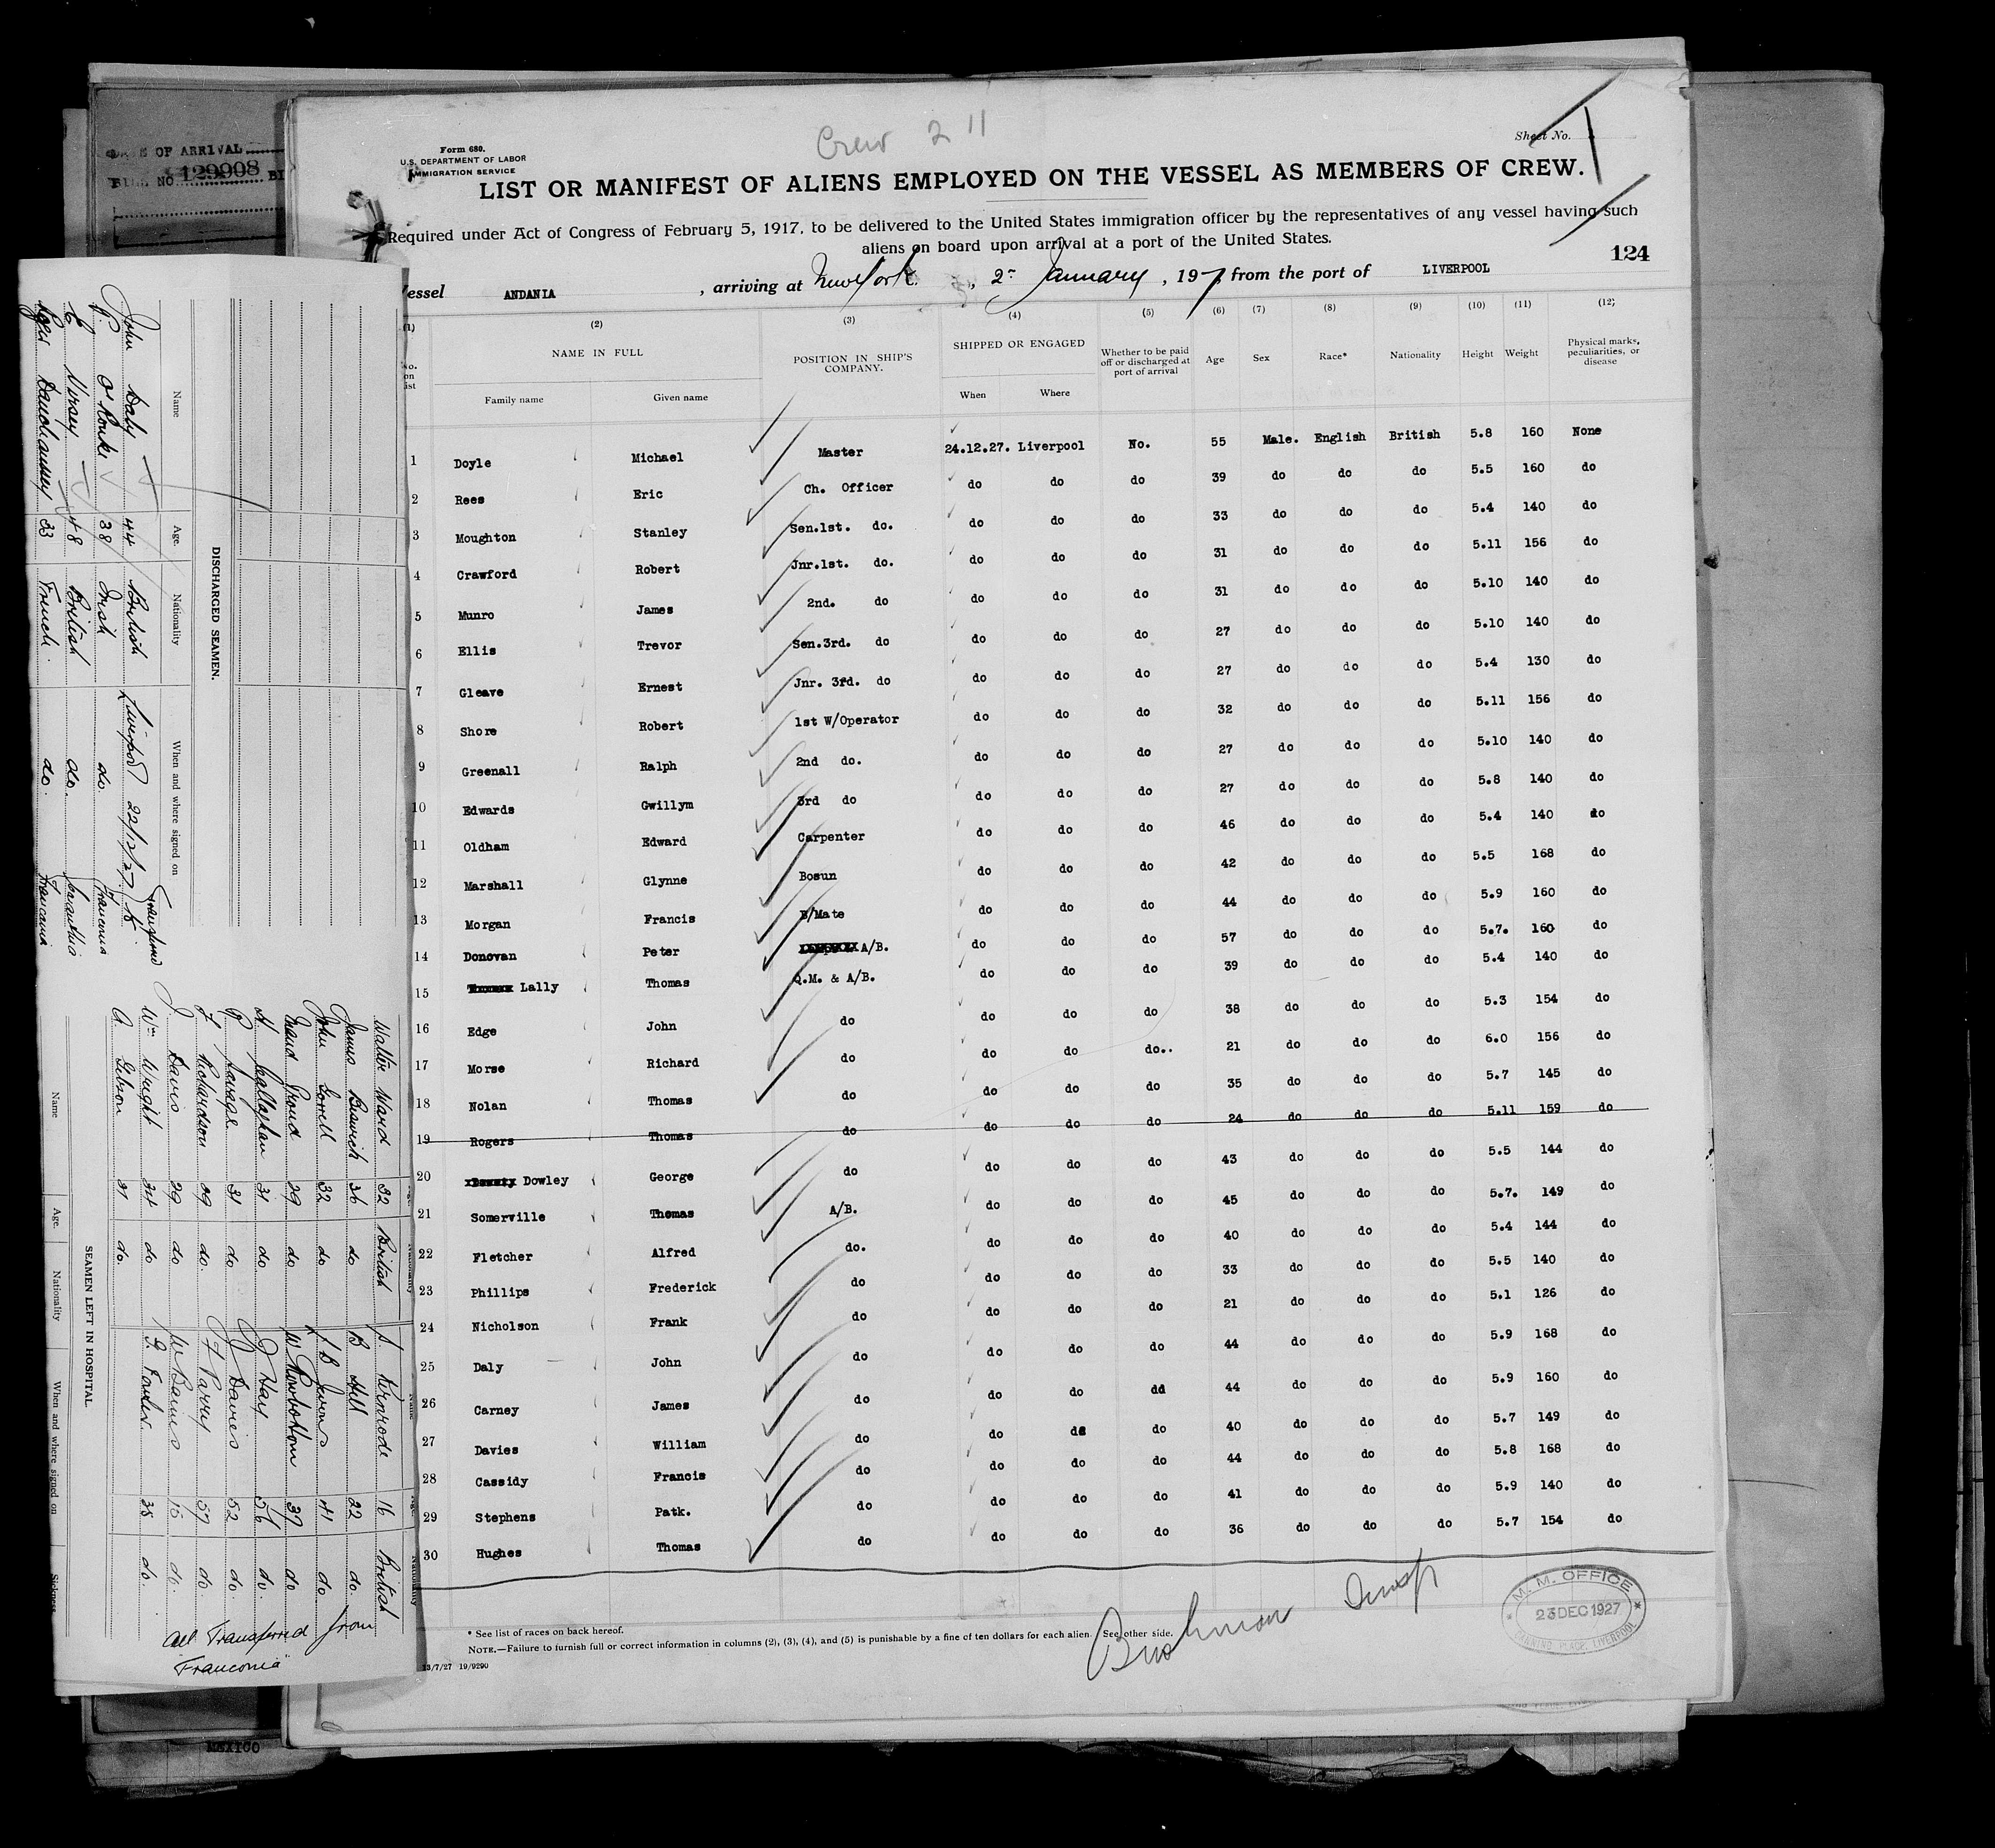 Crew 2 11
Sheet No.
Form 680.
U.S. DEPARTMENT OF LABOR
IMMIGRATION SERVICE
LIST OR MANIFEST OF ALIENS EMPLOYED ON THE VESSEL AS MEMBERS OF CREW.
Required under Act of Congress of February 5, 1917, to be delivered to the United States immigration officer by the representatives of any vessel having such
aliens on board upon arrival at a port of the United States.
124
Vessel ANDANIA, arriving at New York, 2 January, 19 from the port of LIVERPOOL
(1) (2) (3) (4) (5) (6) (7) (8) (9) (10) (11) (12)
No. on list NAME IN FULL POSITION IN SHIP'S COMPANY. SHIPPED OR ENGAGED Whether to be paid off or discharged at port of arrival Age Sex Race* Nationality Height Weight Physical marks, peculiarities, or disease
Family name Given name When Where
1 Doyle Michael Master 24.12.27. Liverpool No. 55 Male. English British 5.8 160 None
2 Rees Eric Ch. Officer do do do 39 do do do 5.5 160 do
3 Moughton Stanley Sen.1st. do. do do do 33 do do do 5.4 140 do
4 Crawford Robert Jnr.1st. do. do do do 31 do do do 5.11 156 do
5 Munro James 2nd. do do do do 31 do do do 5.10 140 do
6 Ellis Trevor Sen.3rd. do do do do 27 do do do 5.10 140 do
7 Gleave Ernest Jnr. 3rd. do do do do 27 do do do 5.4 130 do
8 Shore Robert 1st W/Operator do do do 32 do do do 5.11 156 do
9 Greenall Ralph 2nd do. do do do 27 do do do 5.10 140 do
10 Edwards Gwillym 3rd do do do do 27 do do do 5.8 140 do
11 Oldham Edward Carpenter do do do 46 do do do 5.4 140 do
12 Marshall Glynne Bosun do do do 42 do do do 5.5 168 do
13 Morgan Francis B/Mate do do do 44 do do do 5.9 160 do
14 Donovan Peter A/B. do do do 57 do do do 5.7. 160 do
15 Lally Thomas Q.M. & A/B. do do do 39 do do do 5.4 140 do
16 Edge John do do do do 38 do do do 5.3 154 do
17 Morse Richard do do do do.. 21 do do do 6.0 156 do
18 Nolan Thomas do do do do 35 do do do 5.7 145 do
19 Rogers Thomas do do do do 24 do do do 5.11 159 do
20 Dowley George do do do do 43 do do do 5.5 144 do
21 Somerville Thomas A/B. do do do 45 do do do 5.7. 149 do
22 Fletcher Alfred do. do do do 40 do do do 5.4 144 do
23 Phillips Frederick do do do do 33 do do do 5.5 140 do
24 Nicholson Frank do do do do 21 do do do 5.1 126 do
25 Daly John do do do do 44 do do do 5.9 168 do
26 Carney James do do do dd 44 do do do 5.9 160 do
27 Davies William do do do do 40 do do do 5.7 149 do
28 Cassidy Francis do do do do 44 do do do 5.8 168 do
29 Stephens Patk. do do do do 41 do do do 5.9 140 do
30 Hughes Thomas do do do do 36 do do do 5.7 154 do
* See list of races on back hereof.
NOTE.—Failure to furnish full or correct information in columns (2), (3), (4), and (5) is punishable by a fine of ten dollars for each alien. See other side.
13/7/27 19/9290
Bushman Insp
M. M. OFFICE
23 DEC 1927
CANNING PLACE, LIVERPOOL
OF ARRIVAL
NO. 129908
MEXICO
DISCHARGED SEAMEN.
Name Age. Nationality When and where signed on
John Daly 44 British Liverpool 22/12/27 Transferred
P. O'Rourke 38 Irish do. Franconia
E Versey 48 British do.
33 French. do. Franconia
SEAMEN LEFT IN HOSPITAL.
Name Age. Nationality When and where signed on Sickness
Walter Ward 32 British 16 British
James Beswick 36 do B Hill 22 do.
John Sorrell 32 do 41 do.
29 do W Rowbottom 37 do
H Callaghan 31 do J Hay 56 do.
P Savage 31 do J Davies 52 do.
F Richardson 29 do. F Parry 57 do
J Davis 29 do W Baines do.
Wm Wright 34 do 38 do.
A. Gibson 31 do.
All Transferred from
"Franconia"